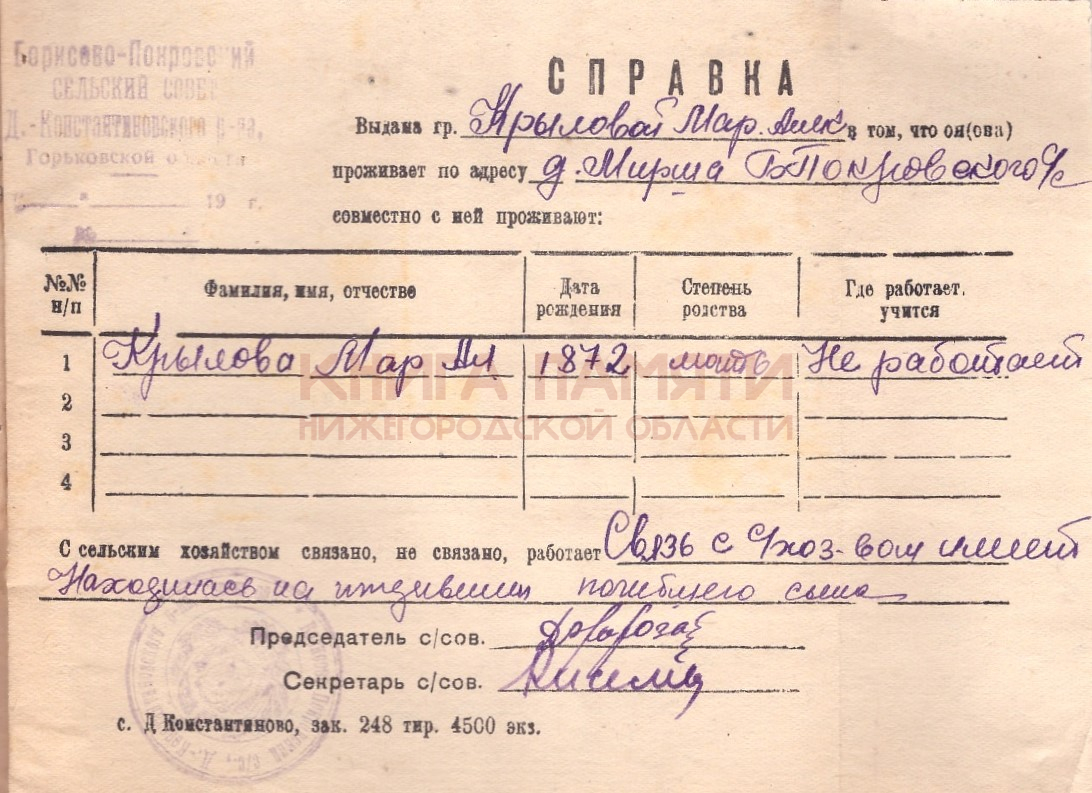 Борисово-Покровский
СЕЛЬСКИЙ СОВЕТ
Д.-Константиновского р-на,
Горьковской области
"___"________19 г.
№
СПРАВКА
Выдана гр. Крыловой Мар. Алек в том, что он(она)
проживает по адресу д. Мирша Б Покровского с/с
совместно с ней проживают:
№№ н/п Фамилия, имя, отчестве Дата рождения Степень родства Где работает, учится
1 Крылова Мар Ал 1872 мать Не работает
2
3
4
С сельским хозяйством связано, не связано, работает Связь с с/хоз-вом имеет
Находилась на иждивении погибшего сына
Председатель с/сов.
Секретарь с/сов.
с. Д Константиново, зак. 248 тир. 4500 экз.
КНИГА ПАМЯТИ
НИЖЕГОРОДСКОЙ ОБЛАСТИ